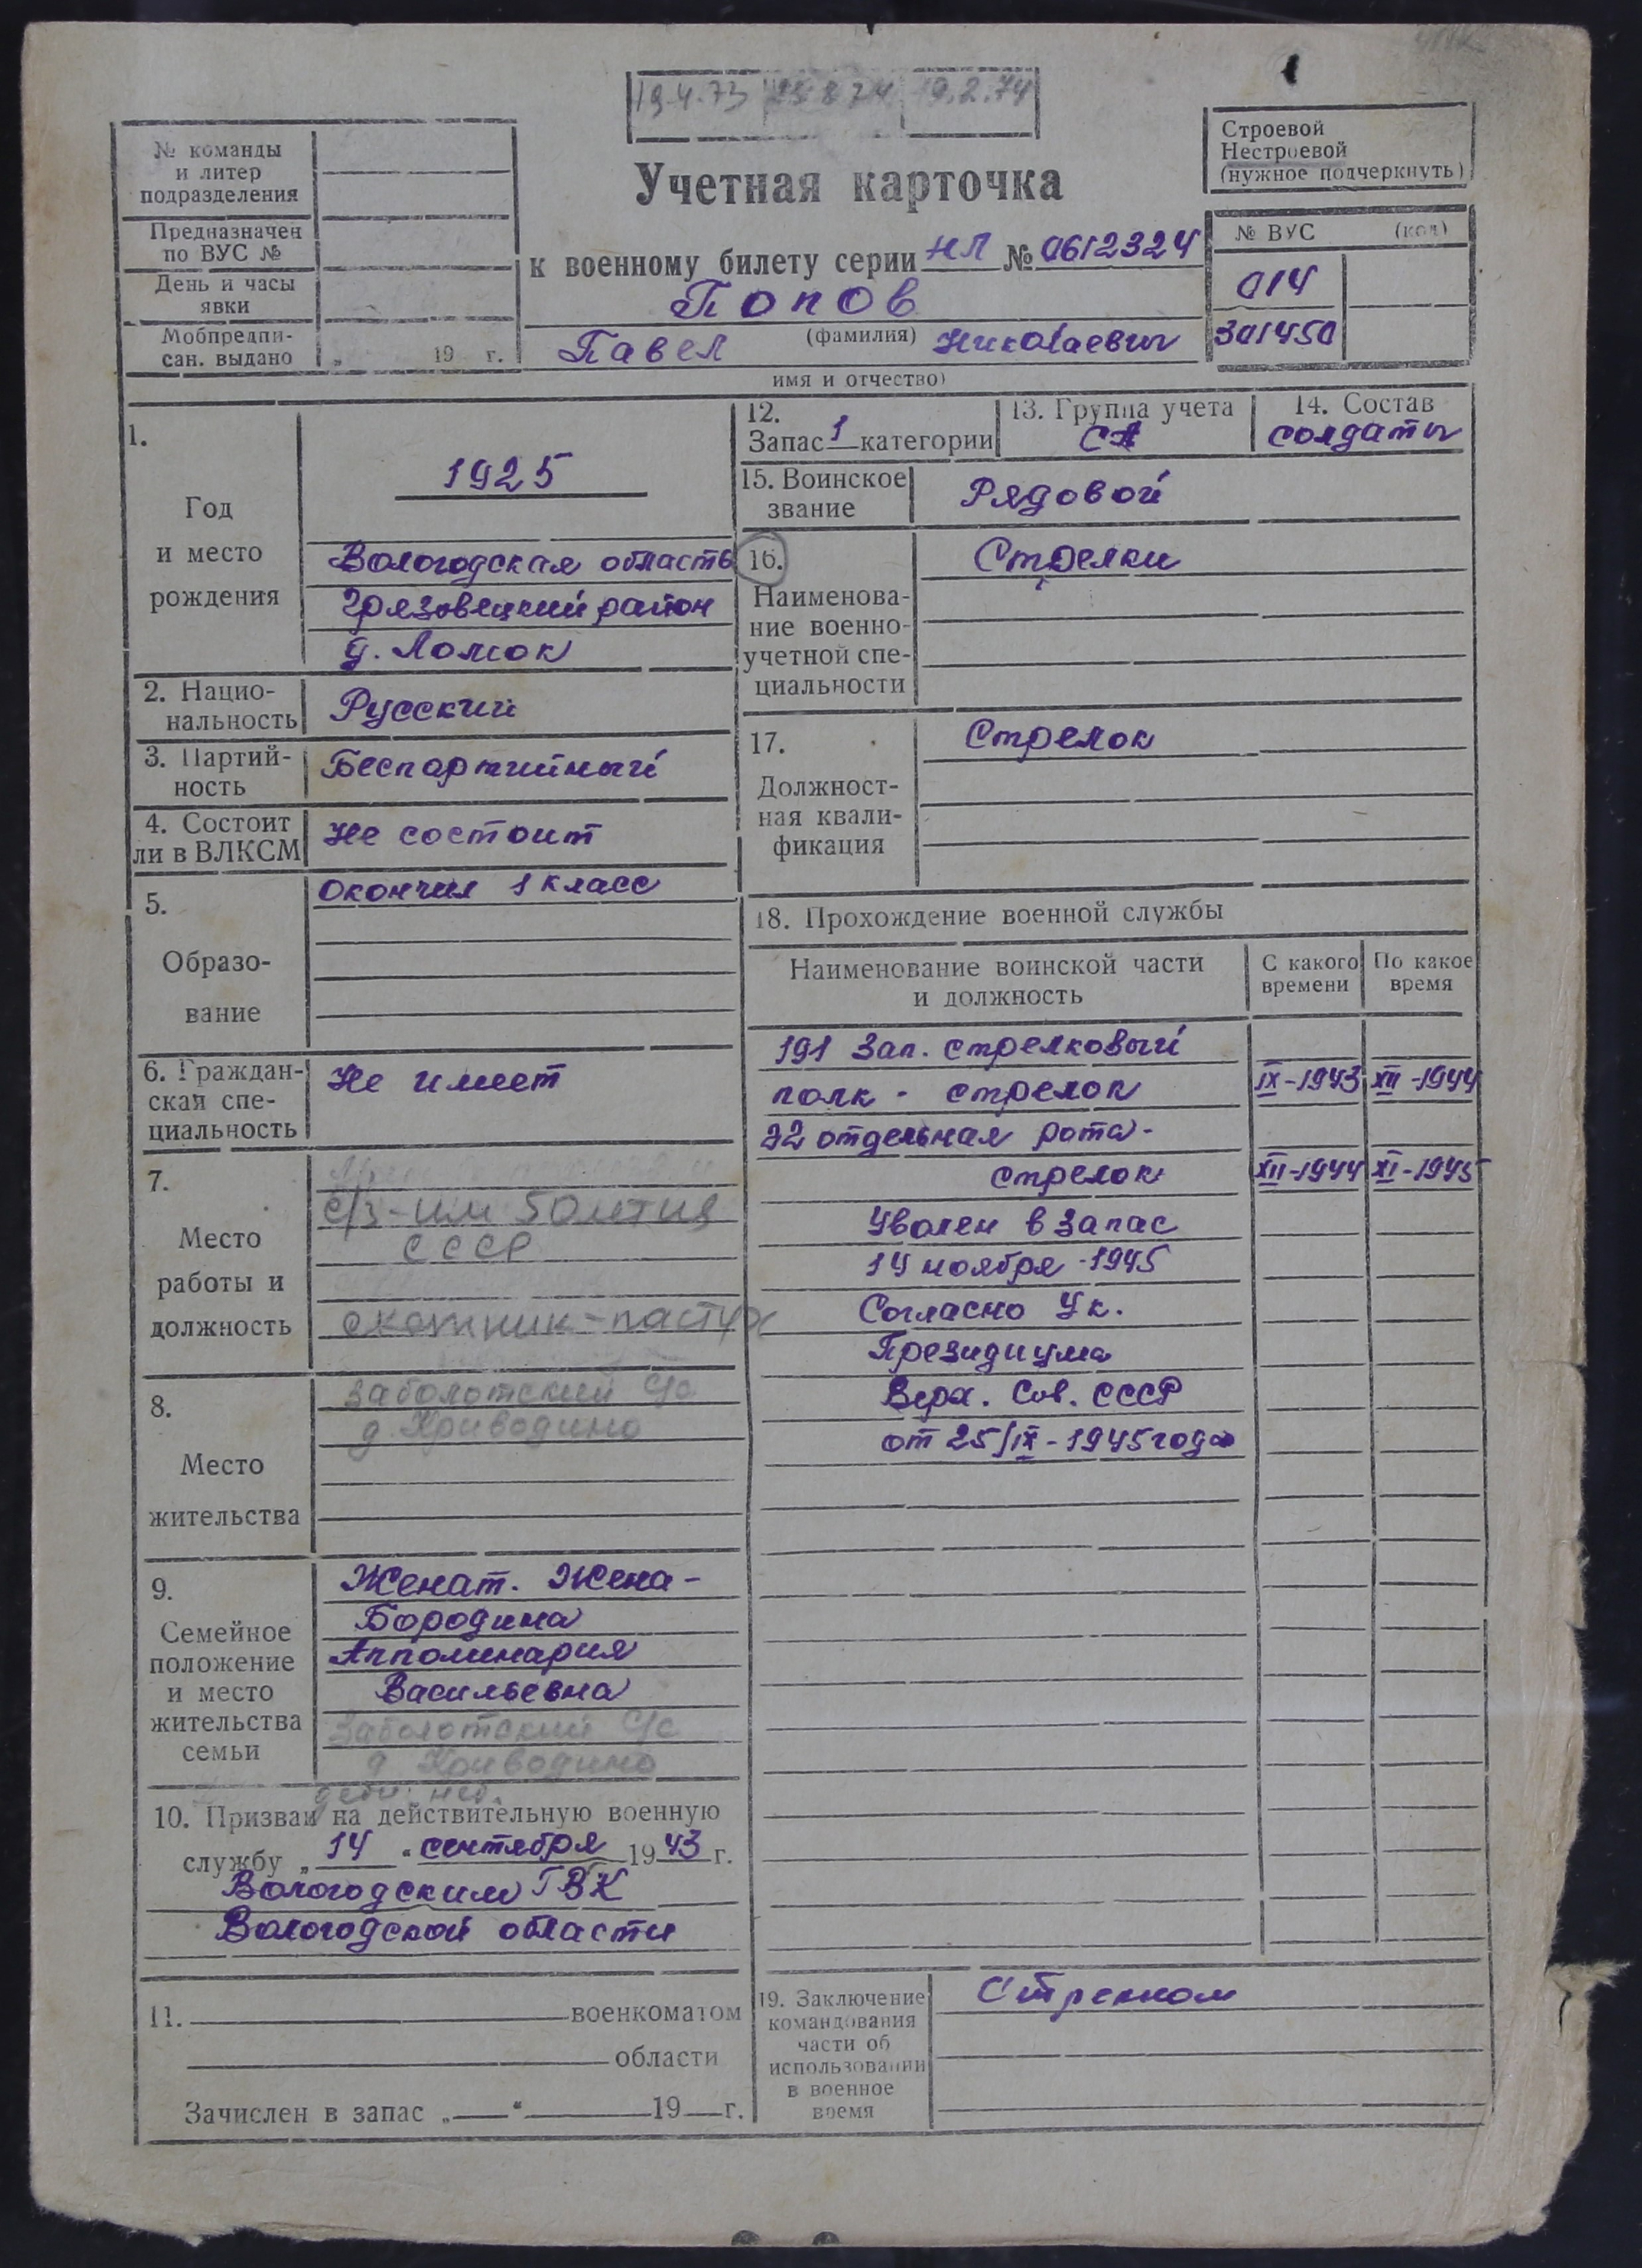 19.4.73 23 8 74 19.2.74
№ команды
и литер
подразделения
Предназначен
по ВУС №
День и часы
явки
Мобпредпи-
сан. выдано „ 19 г.
Учетная карточка
к военному билету серии НЛ № 0612324
Попов
(фамилия)
Павел Николаевич
имя и отчество)
Строевой
Нестроевой
(нужное подчеркнуть)
№ ВУС (код)
014
301450
1.
Год
и место
рождения
1925
Вологодская область
Грязовецкий район
д. Ломок
2. Нацио-
нальность
Русский
3. Партий-
ность
Беспартийный
4. Состоит
ли в ВЛКСМ
Не состоит
5.
Образо-
вание
Окончил 1 класс
6. Граждан-
ская спе-
циальность
Не имеет
7.
Место
работы и
должность
с/з - им 50 летия
СССР
скотник - пастух
8.
Место
жительства
Заболотский с/с
д. Криводино
9.
Семейное
положение
и место
жительства
семьи
Женат. Жена -
Бородина
Апполинария
Васильевна
Заболотский с/с
д Криводино
дети: нет.
10. Призван на действительную военную
службу „ 14 “ сентября 1943 г.
Вологодским ГВК
Вологодской области
11. военкоматом
области
Зачислен в запас „ “ 19 г.
12.
Запас 1 категории
13. Группа учета
СА
14. Состав
солдаты
15. Воинское
звание
Рядовой
16.
Наименова-
ние военно-
учетной спе-
циальности
Стрелки
17.
Должност-
ная квали-
фикация
Стрелок
18. Прохождение военной службы
Наименование воинской части
и должность
С какого
времени
По какое
время
191 Зап. стрелковый
полк - стрелок IX-1943 XII-1944
32 отдельная рота -
стрелок XII-1944 XI-1945
Уволен в запас
14 ноября - 1945
Согласно Ук.
Президиума
Верх. Сов. СССР
от 25/IX - 1945 года
19. Заключение
командования
части об
использовании
в военное
время
Стрелком